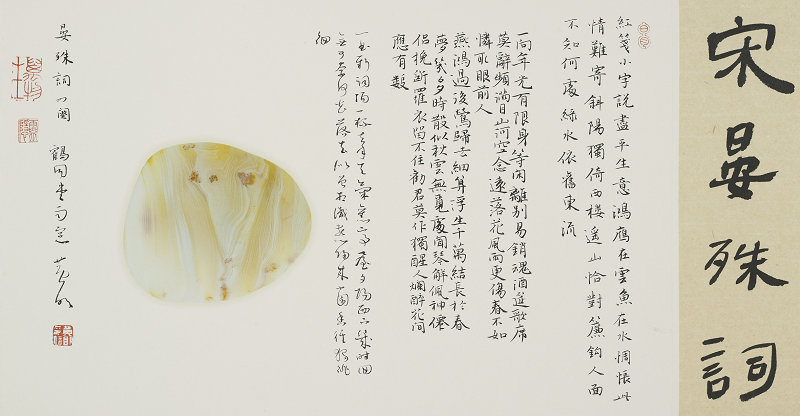 宋晏殊詞
紅箋小字說盡平生意鴻鴈在雲魚在水惆悵此
情難寄斜陽獨倚西楼遙山恰對簾鉤人面
不知何處綠水依舊東流
一向年光有限身等閑離別易銷魂酒筵歌席
莫辭頻滿目山河空念遠落花風雨更傷春不如
憐取眼前人
燕鴻過後鶯歸去細算浮生千萬緒長於春
夢幾多時散似秋雲無覓處聞琴解佩神仙
侶挽斷羅衣留不住勸君莫作獨醒人爛醉花間
應有數
一曲新詞酒一杯去年天氣舊亭臺夕陽西下幾時回
無可奈何花落去似曾相識燕歸來小園香徑獨徘
徊
晏殊詞四闋